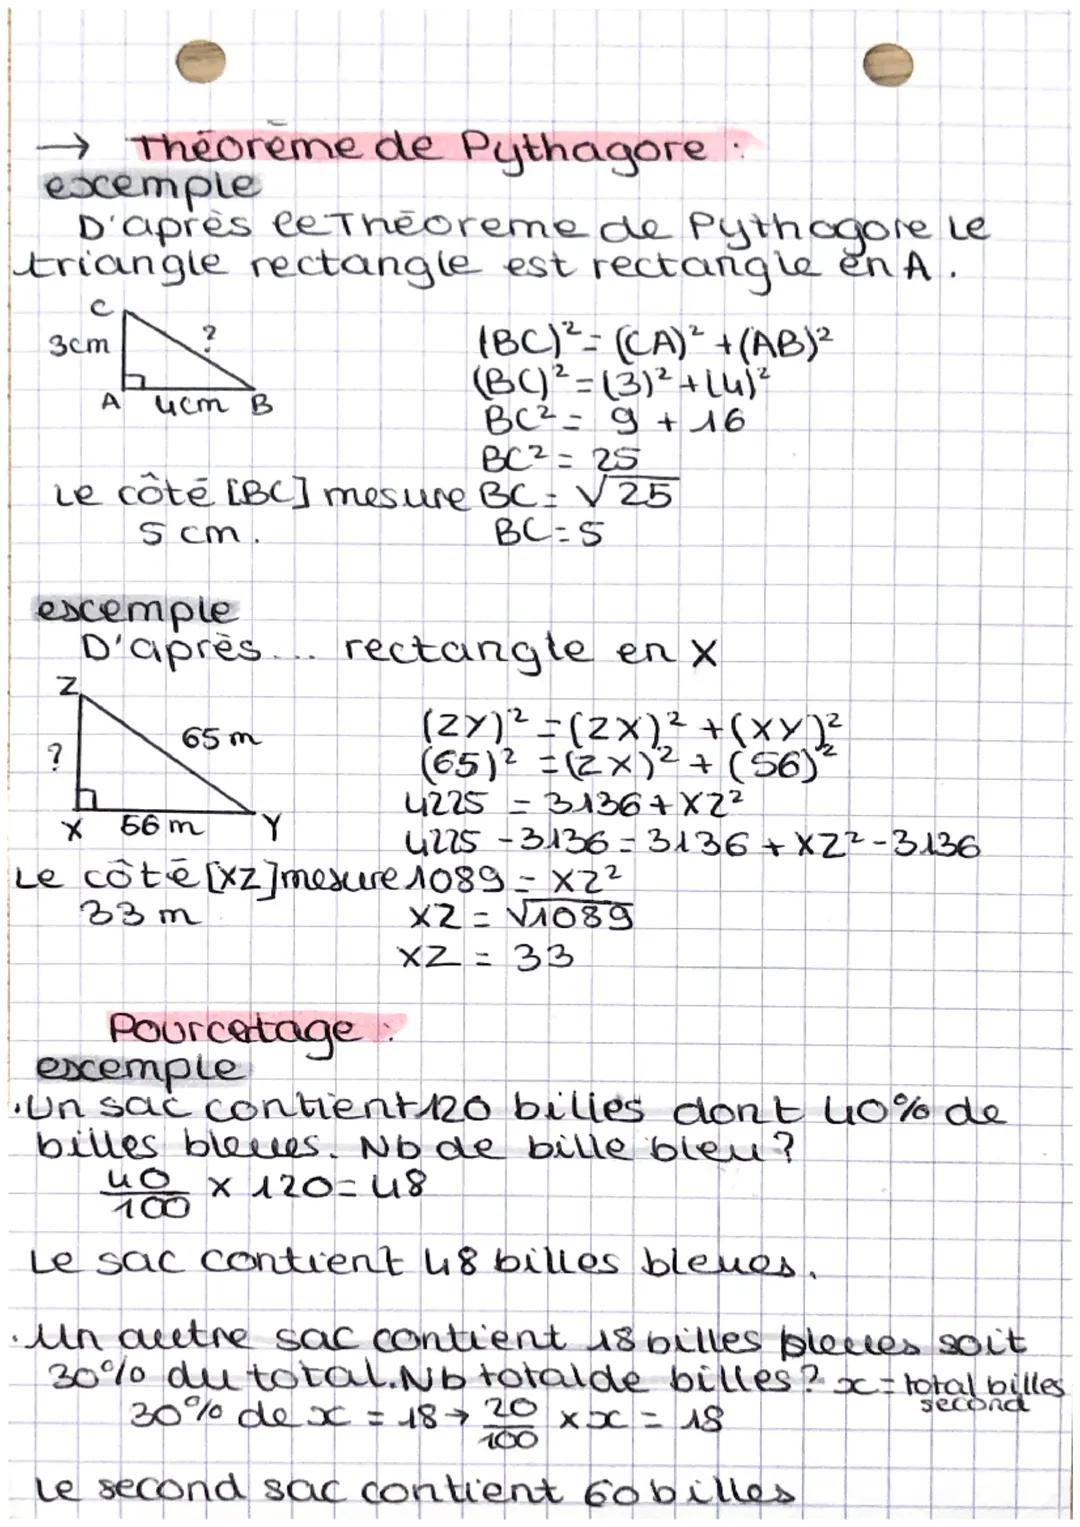 → Théorème de Pythagore :
exemple
D'après le Théoreme de Pythagore le
triangle rectangle est rectangle en A.
C
3cm
?
A 4cm B
(BC)² = (CA)² + (AB)²
(BC)² = (3)² + (4)²
BC² = 9 + 16
BC² = 25
Le côté [BC] mesure BC = √25
5 cm. BC = 5
exemple
D'après... rectangle en X
Z
65 m
?
X 56 m Y
(ZY)² = (ZX)² + (XY)²
(65)² = (ZX)² + (56)²
4225 = 3136 + XZ²
4225 - 3136 = 3136 + XZ² - 3136
Le côté [XZ] mesure 1089 = XZ²
33 m XZ = √1089
XZ = 33
Pourcetage :
exemple
.Un sac contient 120 billes dont 40% de
billes bleues. Nb de bille bleu ?
40/100 x 120 = 48
Le sac contient 48 billes bleues.
.Un autre sac contient 18 billes bleues soit
30% du total. Nb total de billes ? x = total billes
second
30% de x = 18 → 20/100 × x = 18
Le second sac contient 60 billes